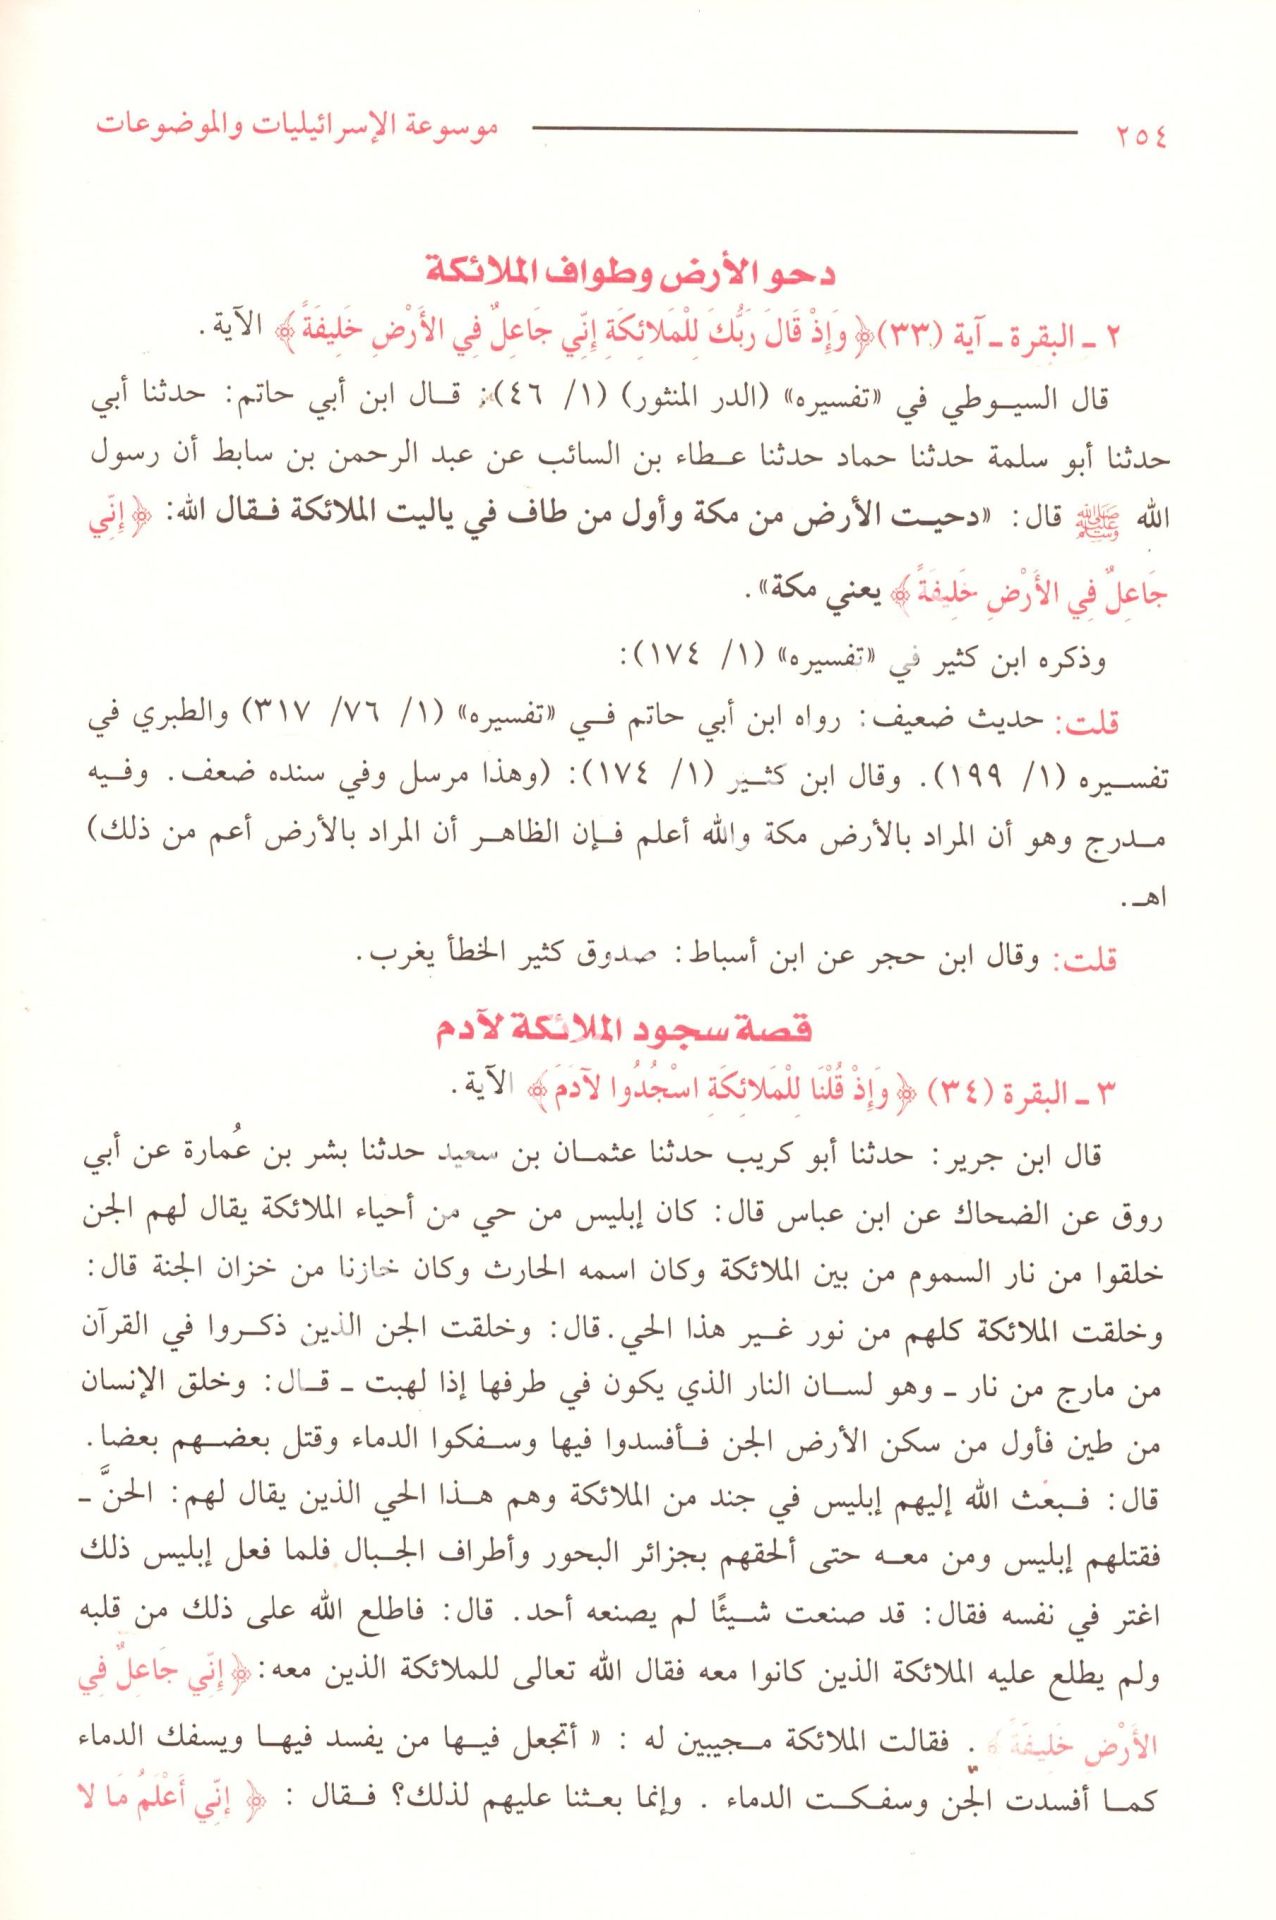 ٢٥٤ موسوعة الإسرائيليات والموضوعات
دحو الأرض وطواف الملائكة
٢ ـ البقرة ـ آية (٣٣) ﴿ وَإِذْ قَالَ رَبُّكَ لِلْمَلائِكَةِ إِنِّي جَاعِلٌ فِي الأَرْضِ خَلِيفَةً ﴾ الآية.
قال السيوطي في «تفسيره» (الدر المنثور) (١/ ٤٦): قال ابن أبي حاتم: حدثنا أبي
حدثنا أبو سلمة حدثنا حماد حدثنا عطاء بن السائب عن عبد الرحمن بن سابط أن رسول
الله ﷺ قال: «دحيت الأرض من مكة وأول من طاف في ياليت الملائكة فقال الله: ﴿ إِنِّي
جَاعِلٌ فِي الأَرْضِ خَلِيفَةً ﴾ يعني مكة».
وذكره ابن كثير في «تفسيره» (١/ ١٧٤):
قلت: حديث ضعيف: رواه ابن أبي حاتم في «تفسيره» (١/ ٧٦/ ٣١٧) والطبري في
تفسيره (١/ ١٩٩). وقال ابن كثير (١/ ١٧٤): (وهذا مرسل وفي سنده ضعف. وفيه
مدرج وهو أن المراد بالأرض مكة والله أعلم فإن الظاهر أن المراد بالأرض أعم من ذلك)
اهـ.
قلت: وقال ابن حجر عن ابن أسباط: صدوق كثير الخطأ يغرب.
قصة سجود الملائكة لآدم
٣ ـ البقرة (٣٤) ﴿ وَإِذْ قُلْنَا لِلْمَلائِكَةِ اسْجُدُوا لآدَمَ ﴾ الآية.
قال ابن جرير: حدثنا أبو كريب حدثنا عثمان بن سعيد حدثنا بشر بن عُمارة عن أبي
روق عن الضحاك عن ابن عباس قال: كان إبليس من حي من أحياء الملائكة يقال لهم الجن
خلقوا من نار السموم من بين الملائكة وكان اسمه الحارث وكان خازنا من خزان الجنة قال:
وخلقت الملائكة كلهم من نور غير هذا الحي. قال: وخلقت الجن الذين ذكروا في القرآن
من مارج من نار ـ وهو لسان النار الذي يكون في طرفها إذا لهبت ـ قال: وخلق الإنسان
من طين فأول من سكن الأرض الجن فأفسدوا فيها وسفكوا الدماء وقتل بعضهم بعضا.
قال: فبعث الله إليهم إبليس في جند من الملائكة وهم هذا الحي الذين يقال لهم: الحنَّ ـ
فقتلهم إبليس ومن معه حتى ألحقهم بجزائر البحور وأطراف الجبال فلما فعل إبليس ذلك
اغتر في نفسه فقال: قد صنعت شيئًا لم يصنعه أحد. قال: فاطلع الله على ذلك من قلبه
ولم يطلع عليه الملائكة الذين كانوا معه فقال الله تعالى للملائكة الذين معه: ﴿ إِنِّي جَاعِلٌ فِي
الأَرْضِ خَلِيفَةً ﴾ . فقالت الملائكة مجيبين له : « أتجعل فيها من يفسد فيها ويسفك الدماء
كما أفسدت الجن وسفكت الدماء . وإنما بعثنا عليهم لذلك؟ فقال : ﴿ إِنِّي أَعْلَمُ مَا لا